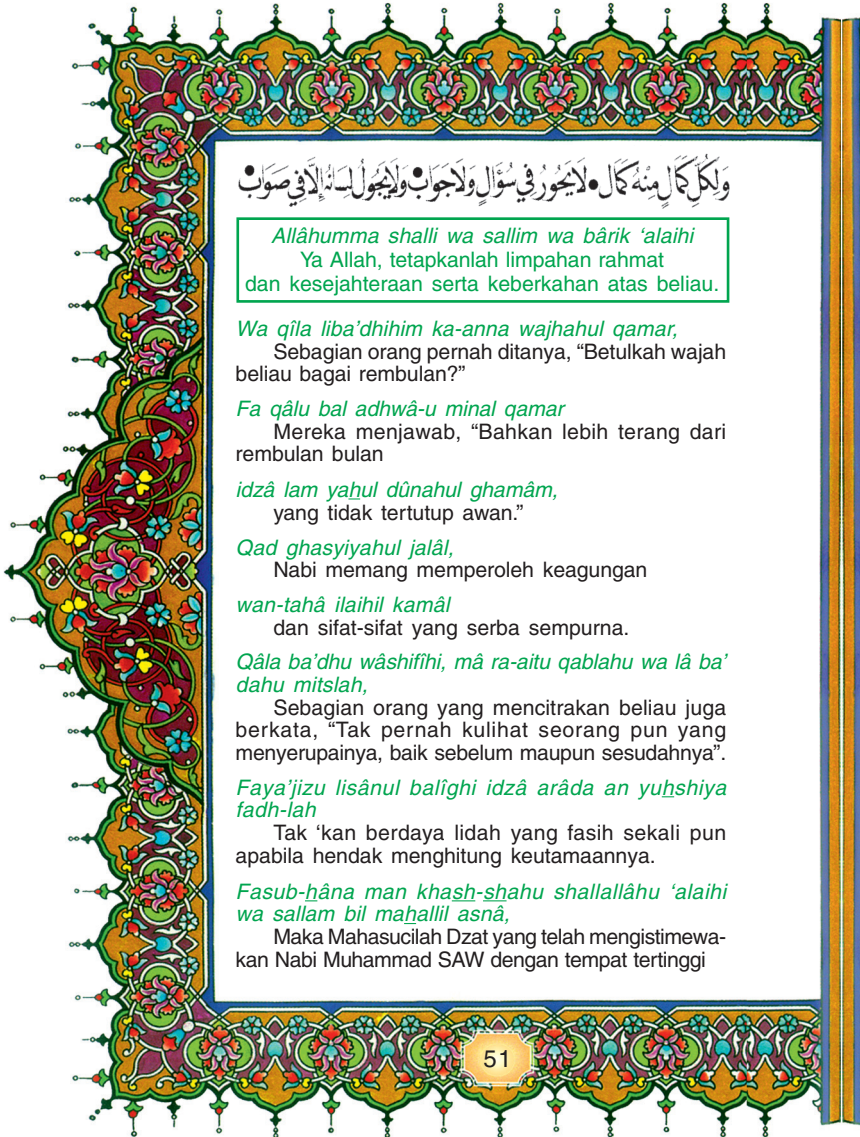 وَلِكُلِّ كَمَالٍ مِنْهُ كَمَال • لَايَحُورُ فِي سُؤَالٍ وَلَاجَوَابْ • وَلَايَجُولُ لِسَانُهُ إِلَّا فِي صَوَابْ •
Allâhumma shalli wa sallim wa bârik ‘alaihi
Ya Allah, tetapkanlah limpahan rahmat
dan kesejahteraan serta keberkahan atas beliau.
Wa qîla liba’dhihim ka-anna wajhahul qamar,
Sebagian orang pernah ditanya, “Betulkah wajah
beliau bagai rembulan?”
Fa qâlu bal adhwâ-u minal qamar
Mereka menjawab, “Bahkan lebih terang dari
rembulan bulan
idzâ lam yahul dûnahul ghamâm,
yang tidak tertutup awan.”
Qad ghasyiyahul jalâl,
Nabi memang memperoleh keagungan
wan-tahâ ilaihil kamâl
dan sifat-sifat yang serba sempurna.
Qâla ba’dhu wâshifîhi, mâ ra-aitu qablahu wa lâ ba’
dahu mitslah,
Sebagian orang yang mencitrakan beliau juga
berkata, “Tak pernah kulihat seorang pun yang
menyerupainya, baik sebelum maupun sesudahnya”.
Faya’jizu lisânul balîghi idzâ arâda an yuhshiya
fadh-lah
Tak ‘kan berdaya lidah yang fasih sekali pun
apabila hendak menghitung keutamaannya.
Fasub-hâna man khash-shahu shallallâhu ‘alaihi
wa sallam bil mahallil asnâ,
Maka Mahasucilah Dzat yang telah mengistimewa-
kan Nabi Muhammad SAW dengan tempat tertinggi
51